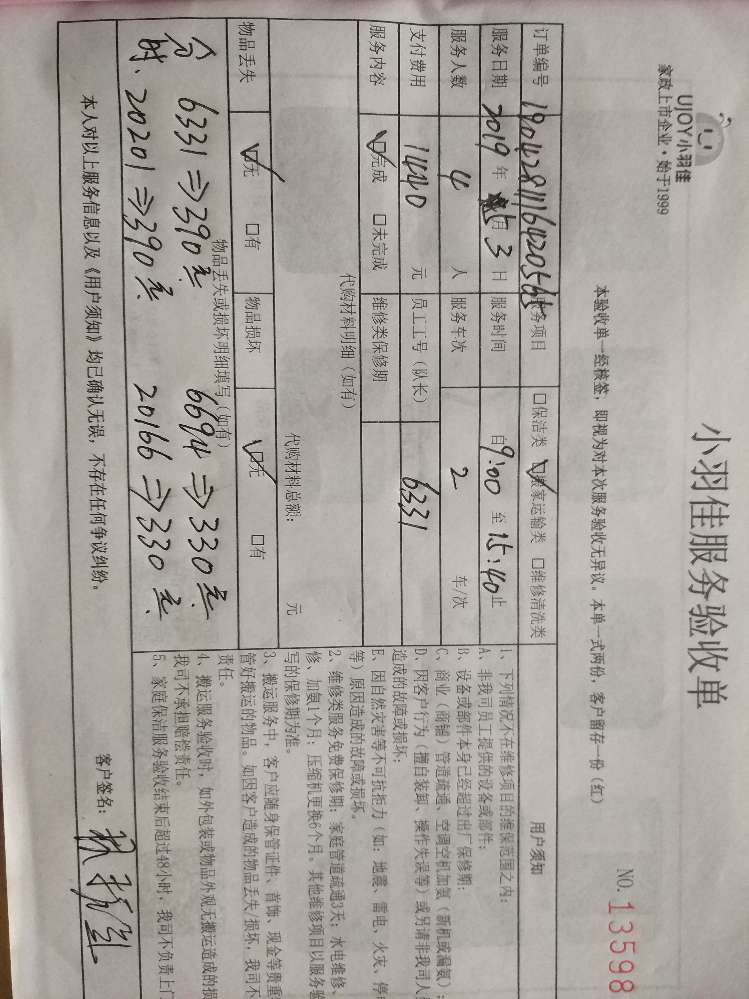 UJOY小羽佳
家政上市企业·始于1999
小羽佳服务验收单
NO. 13598
本验收单一经核签，即视为对本次服务验收无异议。本单一式两份，客户留存一份（红）
订单编号 服务项目 □保洁类 ☑搬家运输类 □维修清洗类
服务日期 2019 年 5 月 3 日 服务时间 自 9:00 至 15:40 止
服务人数 4 人 服务车次 2 车/次
支付费用 1440 元 员工工号（队长） 6331
服务内容 ☑完成 □未完成 维修类保修期
代购材料明细（如有）
代购材料总额： 元
物品丢失 ☑无 □有 物品损坏 ☑无 □有
物品丢失或损坏明细填写（如有）
6331⇒390元 6694⇒330元
20201⇒390元 20166⇒330元
用户须知
1、下列情况不在维修项目的维保范围之内：
A、非我司员工提供的设备或部件；
B、设备或部件本身已经超过出厂保修期；
C、商业（商铺）管道疏通、空调空机加氨（新机或漏氨）；
D、因客户行为（擅自装卸、操作失误等）或另请非我司人
造成的故障或损坏；
E、因自然灾害等不可抗拒力（如：地震、雷电、火灾、停
等）原因造成的故障或损坏。
2、维修类服务免费保修期：家庭管道疏通3天；水电维修、
修、加氨1个月；压缩机更换6个月。其他维修项目以服务验
写的保修期为准。
3、搬运服务中，客户应随身保管证件、首饰、现金等贵重
管好搬运的物品。如因客户造成的物品丢失/损坏，我司不
责任。
4、搬运服务验收时，如外包装或物品外观无搬运造成的损
我司不承担赔偿责任。
5、家庭保洁服务验收结束后超过48小时，我司不负责上门
本人对以上服务信息以及《用户须知》均已确认无误，不存在任何争议纠纷。 客户签名：